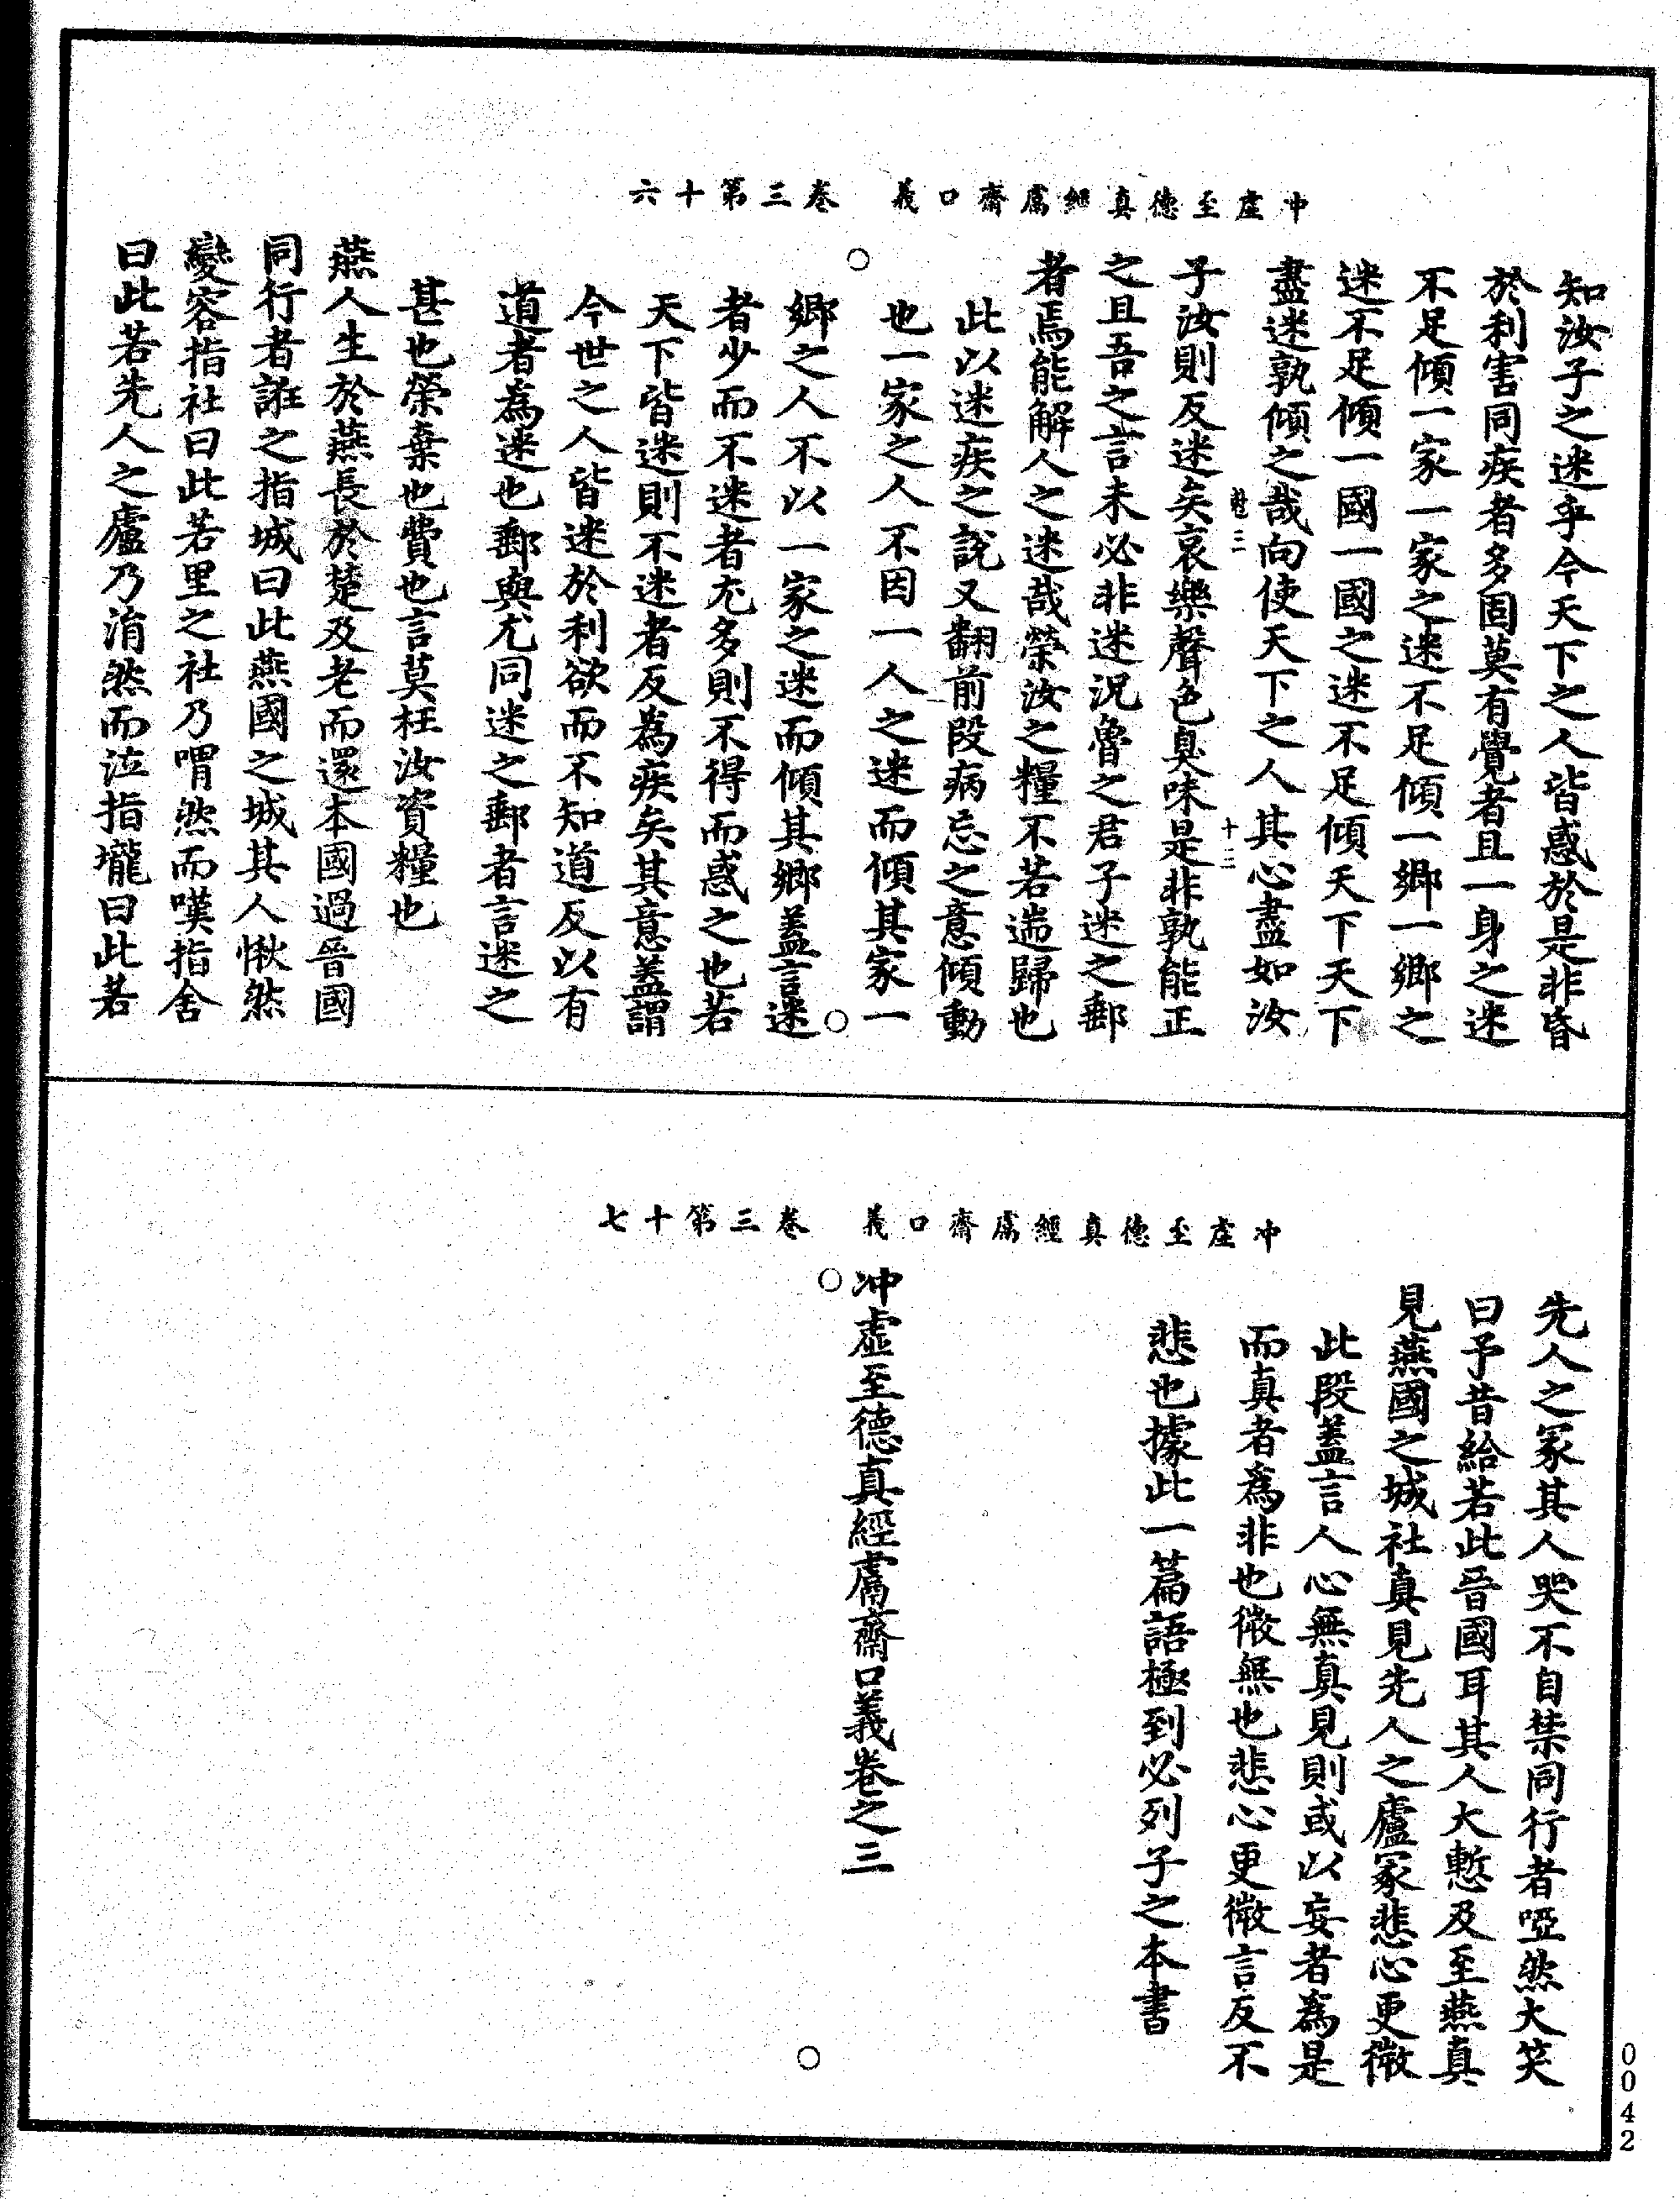 冲虛至德真經鬳齋口義 卷三第十六
知汝子之迷乎今天下之人皆惑於是非昏
於利害同疾者多固莫有覺者且一身之迷
不足傾一家一家之迷不足傾一鄉一鄉之
迷不足傾一國一國之迷不足傾天下天下
盡迷孰傾之哉向使天下之人其心盡如汝
十二
子汝則反迷矣哀樂聲色臭味是非孰能正
之且吾之言未必非迷況魯之君子迷之郵
者焉能解人之迷哉榮汝之糧不若遄歸也
此以迷疾之說又翻前段病忘之意傾動
也一家之人不因一人之迷而傾其家一
鄉之人不以一家之迷而傾其鄉蓋言迷
者少而不迷者尤多則不得而惑之也若
天下皆迷則不迷者反為疾矣其意蓋謂
今世之人皆迷於利欲而不知道反以有
道者為迷也郵與尤同迷之郵者言迷之
甚也榮棄也費也言莫枉汝資糧也
燕人生於燕長於楚及老而還本國過晉國
同行者誑之指城曰此燕國之城其人愀然
變容指社曰此若里之社乃喟然而嘆指舍
曰此若先人之廬乃涓然而泣指壠曰此若
冲虛至德真經鬳齋口義 卷三第十七
先人之冢其人哭不自禁同行者啞然大笑
曰予昔紿若此晉國耳其人大慙及至燕真
見燕國之城社真見先人之廬冢悲心更微
此段蓋言人心無真見則或以妄者為是
而真者為非也微無也悲心更微言反不
悲也據此一篇語極到必列子之本書
冲虛至德真經鬳齋口義卷之三
0042